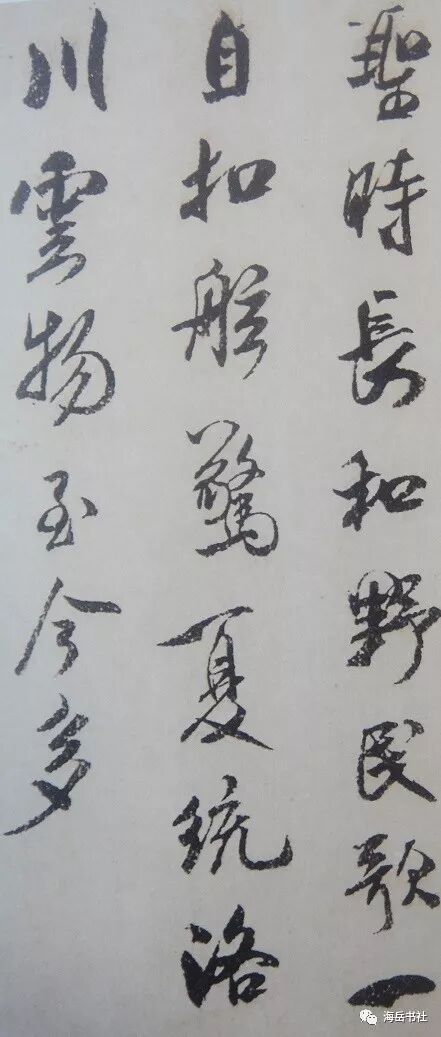 聖時長和野民歌一
自扣舷驚夏統洛
川雲物至今多
海岳书社